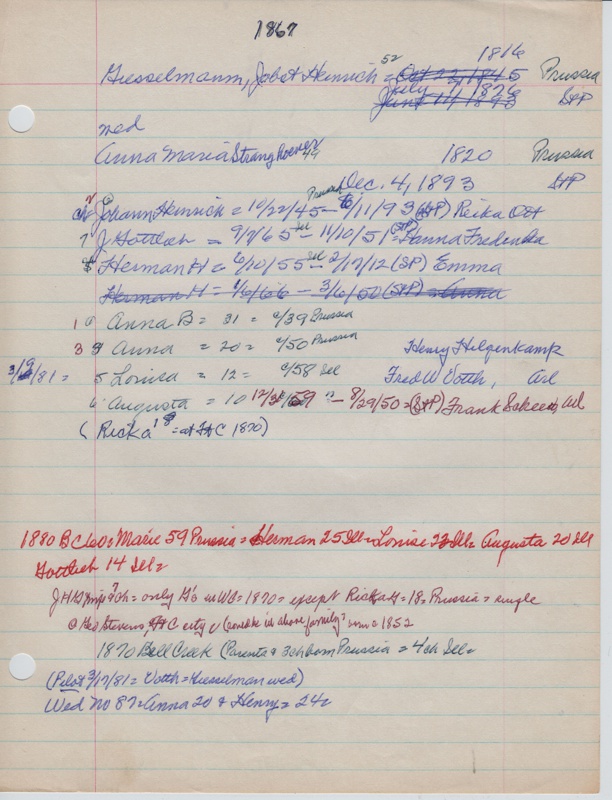 1867
1816
Giesselmann, Jobst Heinrich 52 = Oct 22, 1845 Prussia
July 7, 1876
June 11, 1893 StP
wed
Anna Maria Strangkoener 49 1820 Prussia
Dec. 4, 1893 StP
2 Johann Heinrich = 10/22/45 Prussia - 6/11/93 (StP) Reika Ott
7 J Gottlieb = 9/7/65 Ill - 11/10/51 (StP) = Hanna Fredericka
Herman H = 6/10/55 Ill - 2/17/12 (StP) Emma
Herman H = 1/6/66 - 3/6/50 (StP) = Anna
1 Anna B = 31 = c/39 Prussia
3 Anna = 20 = c/50 Prussia Henry Hilgenkamp
3/9/81 = 5 Louisa = 12 = c/58 Ill Fred W Votth, Arl
6 Augusta = 10 12/31/59 - 8/29/50 = (StP) Frank Arl
(Ricka 18 = at FtC 1870)
1880 B C 160 = Marie 59 Prussia = Herman 25 Ill = Louise 22 Ill = Augusta 20 Ill
Gottlieb 14 Ill =
J H G 7 ch = only G's in WC = 1870 = except Ricka G = 18 = Prussia = single
@ Geo Stevens, FtC city in above family? 1852
1870 Bell Creek (Parents & 3 ch born Prussia = 4 ch Ill =
(Pilot 3/17/81 = Votth = Giesselman wed)
Wed No 87 = Anna 20 & Henry = 24 =